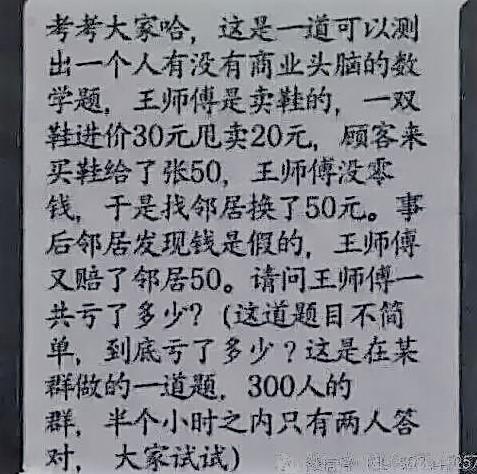 考考大家哈，这是一道可以测
出一个人有没有商业头脑的数
学题，王师傅是卖鞋的，一双
鞋进价30元甩卖20元，顾客来
买鞋给了张50，王师傅没零
钱，于是找邻居换了50元。事
后邻居发现钱是假的，王师傅
又赔了邻居50。请问王师傅一
共亏了多少？（这道题目不简
单，到底亏了多少？这是在某
群做的一道题，300人的
群，半个小时之内只有两人答
对，大家试试）